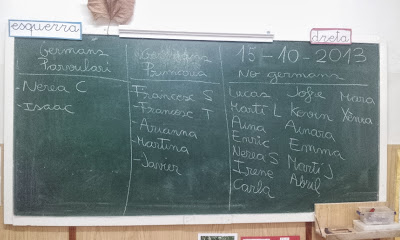 esquerra
dreta
Germans
Parvulari
- Nerea C
- Isaac
Germans
Primària
- Francesc S
- Francesc T
- Arianna
- Martina
- Javier
15-10-2013
No germans
Lucas Jofre Mara
Martí L Kevin Xènia
Aina Ainara
Enric Emma
Nerea S Martí J
Irene Abril
Carla